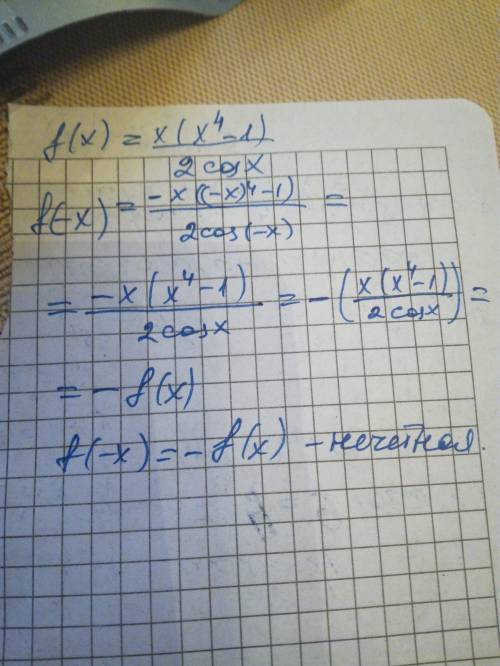 f(x) = x(x⁴-1) / 2cosx
f(-x) = -x((-x)⁴-1) / 2cos(-x) =
= -x(x⁴-1) / 2cosx = -(x(x⁴-1) / 2cosx) =
= - f(x)
f(-x) = - f(x) - нечётная.